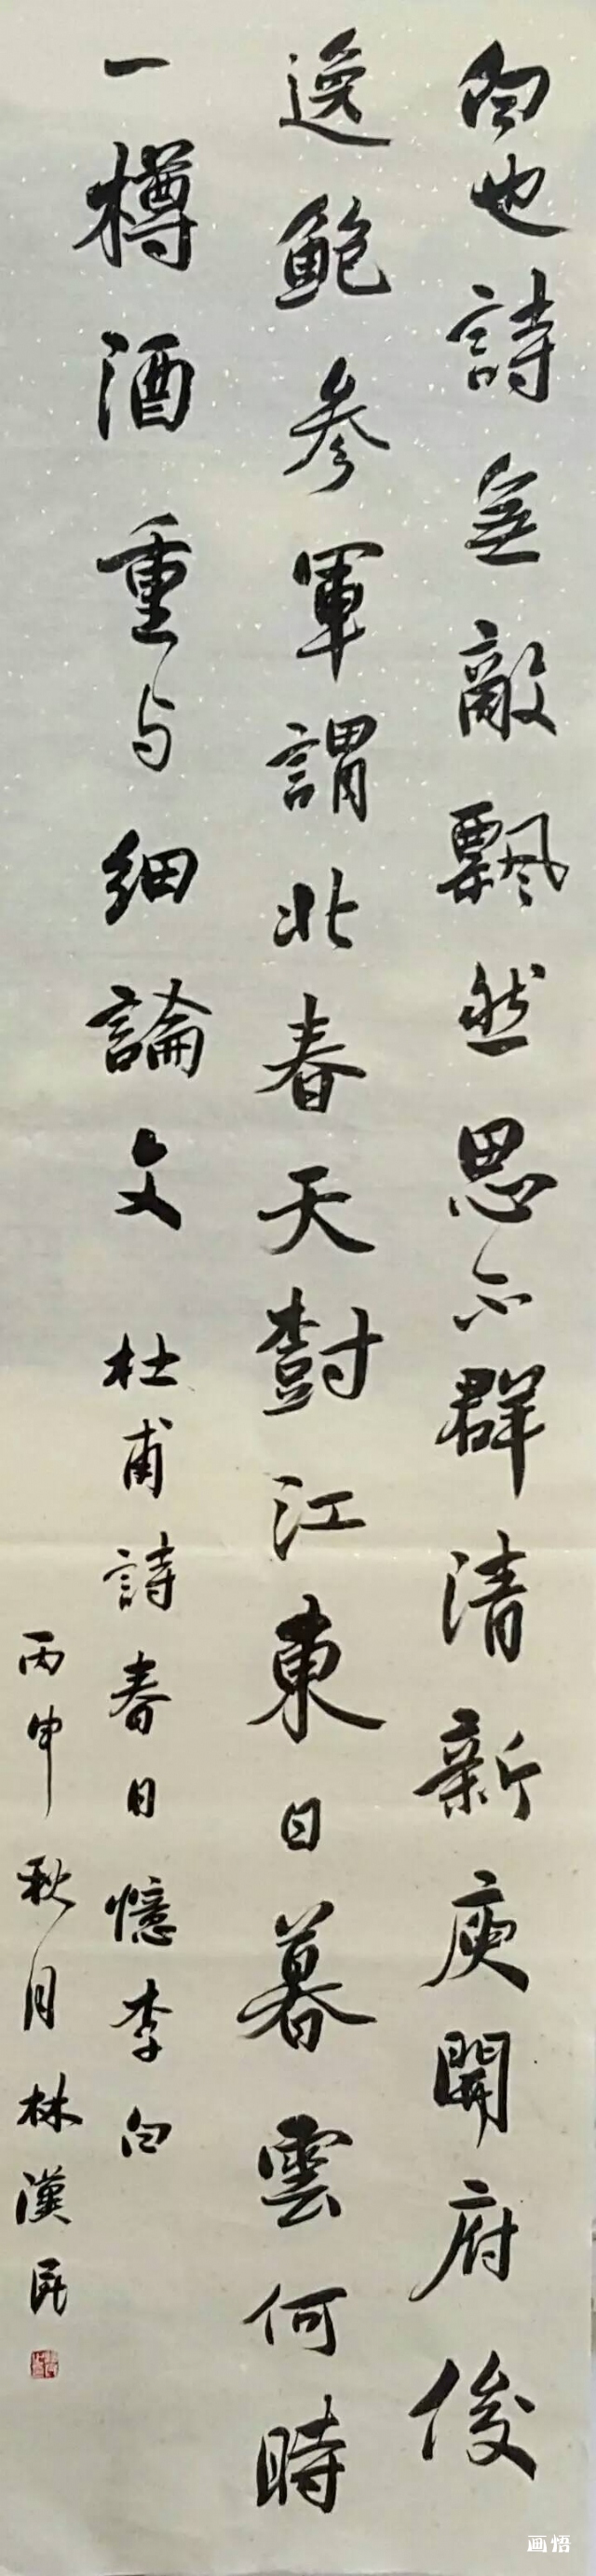 白也詩無敵飄然思不群清新庾開府俊
逸鮑参軍謂北春天樹江東日暮雲何時
一樽酒重与細論文 杜甫詩春日憶李白
丙申秋月林漢民
画悟